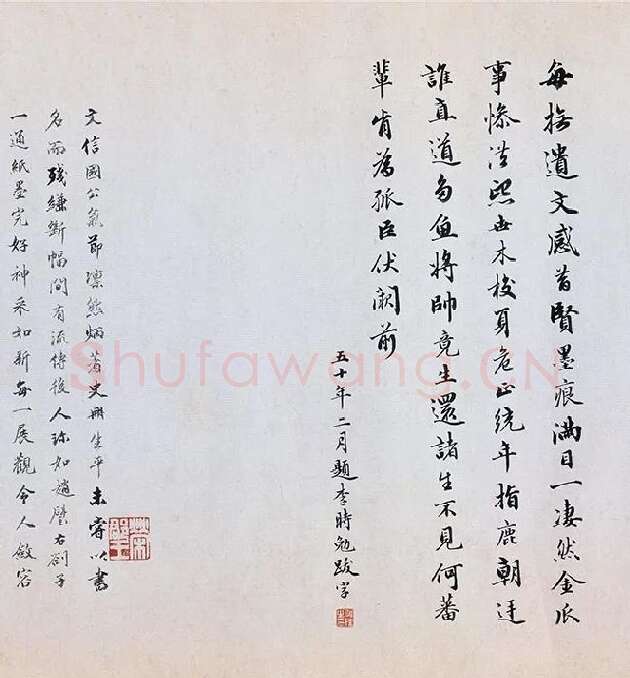 每撫遺文感昔賢墨痕滿目一凄然金瓜
事慘洪熙世木校危正統年指鹿朝廷
誰直道多魚將帥竟生還諸生不見何蕃
輩肯為孤臣伏闕前
五十年二月題李時勉跋字
文信國公氣節凜然炳著史冊生平未審以書
名而殘縑斷幅間有流傳後人珍如趙璧右劄子
一通紙墨完好神采如新每一展觀令人斂容
Shufawang.CN